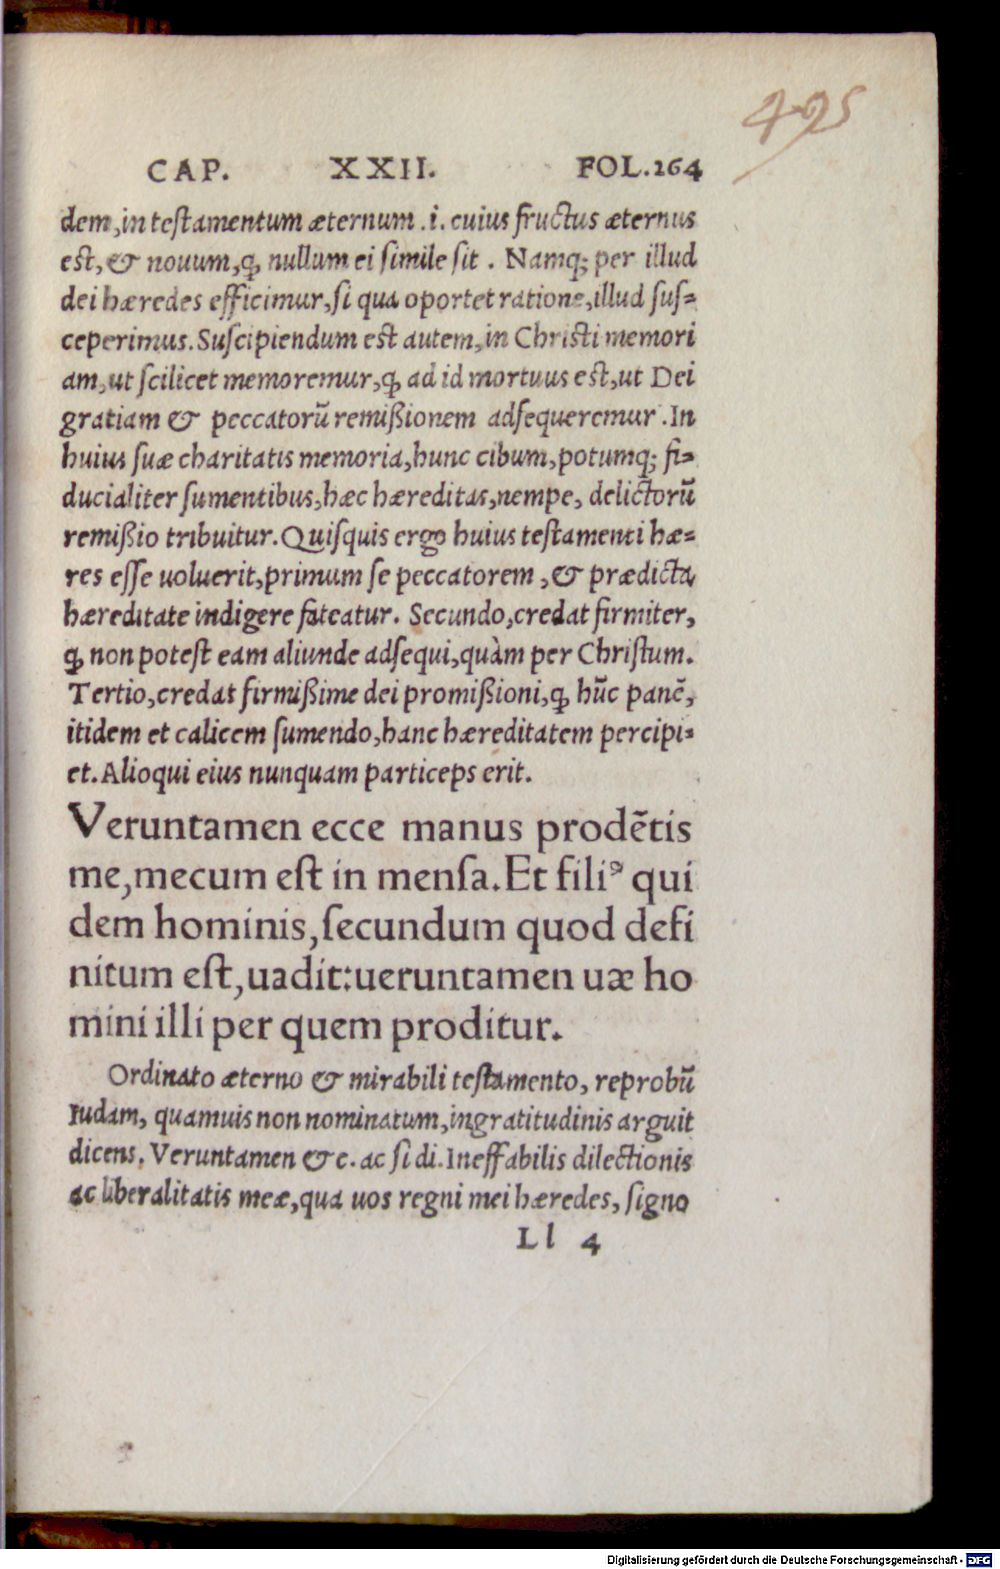 495
CAP. XXII. FOL.264
dem,in testamentum æternum .i. cuius fructus æternus
est, & nouum,ꝙ nullum ei simile sit . Namq; per illud
dei hæredes efficimur,si qua oportet ratione,illud sus=
ceperimus.Suscipiendum est autem,in Christi memori
am,ut scilicet memoremur,ꝙ ad id mortuus est,ut Dei
gratiam & peccatorũ remißionem adsequeremur .In
huius suæ charitatis memoria,hunc cibum,potumq; fi=
ducialiter sumentibus,hæc hæreditas,nempe, delictorũ
remißio tribuitur.Quisquis ergo huius testamenti hæ=
res esse uoluerit,primum se peccatorem ,& prædicta
hæreditate indigere fateatur. Secundo,credat firmiter,
ꝙ non potest eam aliunde adsequi,quàm per Christum.
Tertio,credat firmißime dei promißioni,ꝙ hũc panẽ,
itidem et calicem sumendo,hanc hæreditatem percipi=
et.Alioqui eius nunquam particeps erit.
Veruntamen ecce manus prodẽtis
me,mecum est in mensa.Et filiꝰ qui
dem hominis,secundum quod defi
nitum est,uadit:ueruntamen uæ ho
mini illi per quem proditur.
Ordinato æterno & mirabili testamento, reprobũ
Iudam, quamuis non nominatum,ingratitudinis arguit
dicens. Veruntamen &c. ac si di.Ineffabilis dilectionis
ac liberalitatis meæ,qua uos regni mei hæredes, signo
Ll 4
Digitalisierung gefördert durch die Deutsche Forschungsgemeinschaft - DFG